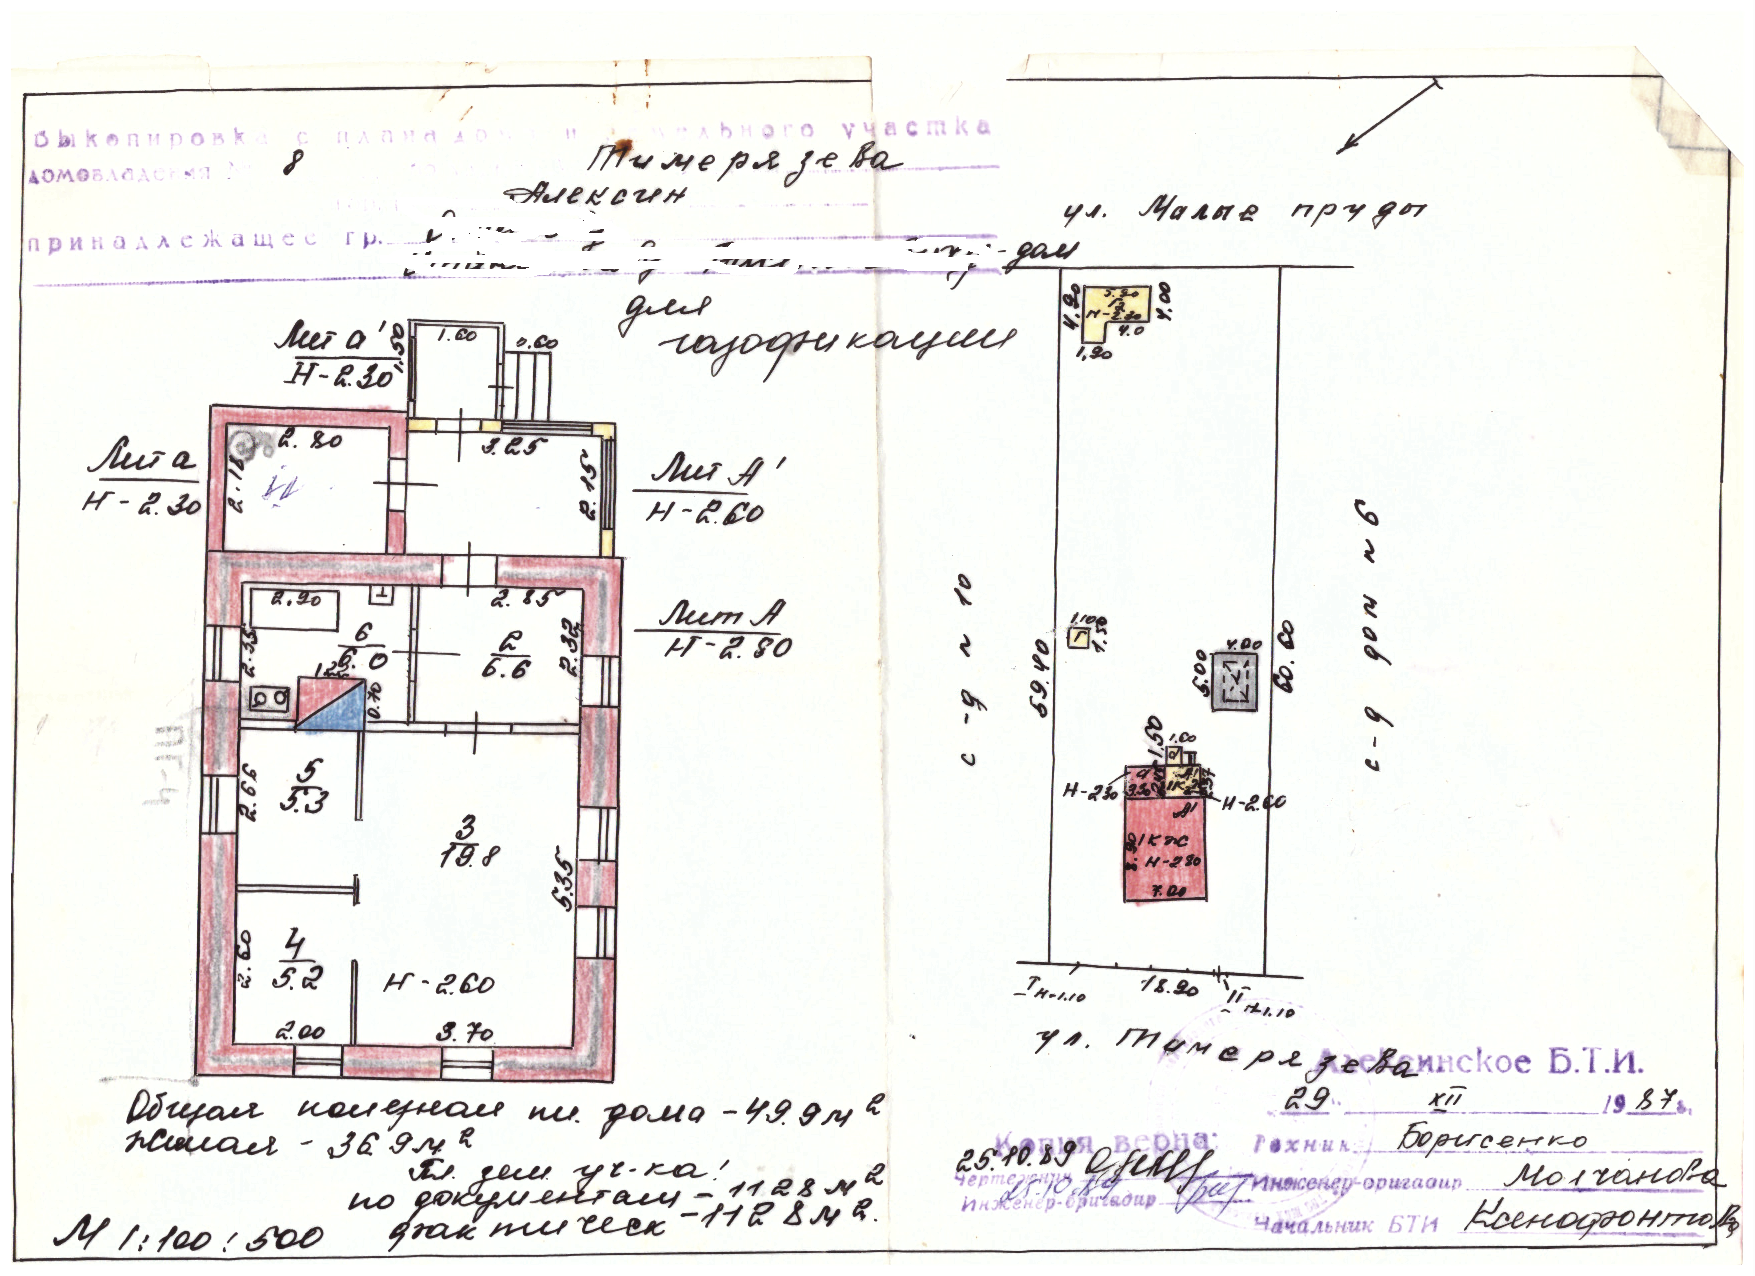 Выкопировка с плана дома и земельного участка
домовладения № 8 Тимерязева
Алексин
принадлежащее гр.
-дом
для
газофикации
Лит а'
Н-2.30
1.50
1.60
0.60
Лит а
Н-2.30
2.80
2.18
3.25
2.15
Лит А'
Н-2.60
2.90
2.35
6
6.0
1.25
0.70
2.85
2
6.6
2.32
Лит А
Н-2.80
5
5.3
2.66
3
19.8
5.35
4
5.2
2.60
Н-2.60
2.00
3.70
Общая полезная пл. дома - 49.9 м2
Жилая - 36.9 м2
Пл. зем. уч-ка!
по документам - 1128 м2
фактическ - 1128 м2.
М 1:100:500
ул. Малые пруды
4.90
5.90
Г2
Н-2.30
4.00
4.0
1,90
с-д № 10
с-д дом № 6
1.10
Г
1.50
69.40
60.60
4.00
5.00
1.50
1.60
а
Н-2.30
3.30
А1
Н-2.60
8.90
1КЖ
Н-2.80
7.00
I Н-1.10
18.90
II Н-1.10
ул. Тимерязева
Алексинское Б.Т.И.
29 XII 1987г.
Копия верна:
Техник Борисенко
25.10.89
Чертежник
25.10.89
Инженер-бригадир
Инженер-бригадир Молчанова
Начальник БТИ Ксенофонтова